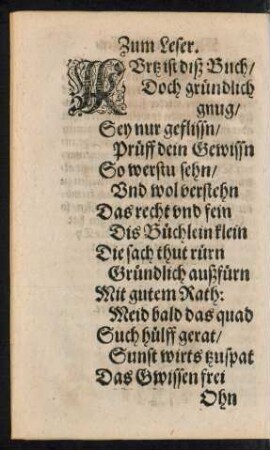 Zum Leser.
KUrtz ist diß Buch/
Doch gründlich
gnug/
Sey nur geflissn/
Prüff dein Gewissn
So werstu sehn/
Vnd wol verstehn
Das recht vnd fein
Dis Büchlein klein
Die sach thut rürn
Gründlich außfürn
Mit gutem Rath:
Meid bald das quad
Such hülff gerat/
Sunst wirts tzuspat
Das Gwissen frei
Ohn